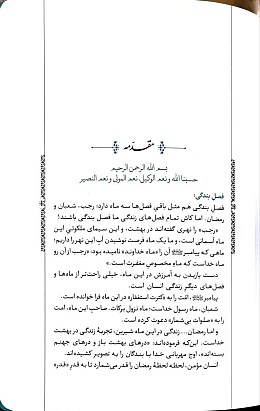 مقدمه
بسم الله الرحمن الرحیم
حسبنا الله و نعم الوکیل، نعم المولی و نعم النصیر
فصل بندگی:
فصل بندگی هم مثل باقی فصل‌ها سه ماه دارد؛ رجب، شعبان و
رمضان. اما کاش تمام فصل‌های زندگی ما فصل بندگی باشند!
«رجب» را نهری گفته‌اند در بهشت، و این سیمای ملکوتی این
ماه آسمانی است، و ما یک ماه فرصت نوشیدن آب این نهر را داریم؛
ماهی که پیامبر ﷺ آن را «ماه خدا» نامیده بود، «رجب» از آن رو
ماه خداست که ماه مخصوص مغفرت است.»
دست یازیدن به آمرزش در این ماه، خیلی راحت‌تر از ماه‌ها و
فصل‌های دیگر زندگی انسان است.
پیامبر ﷺ، امت را به «کثرت استغفار» در این ماه فرا خوانده است.
شعبان، ماه رسول خداست؛ ماه نزول برکات. صاحب این ماه، امت
را به «صلوات بی‌شمار» دعوت کرده است.
و اما رمضان... زندگی در این ماه شیرین، تجربهٔ زندگی در بهشت
خداست. این‌که فرموده‌اند: «درهای بهشت باز و درهای جهنم
بسته‌اند»، اوج مهربانی خدا با بندگان را به تصویر کشیده‌اند.
انسان مؤمن، لحظه لحظهٔ رمضان را قدر می‌شمارد تا به قدرِ «قدر»